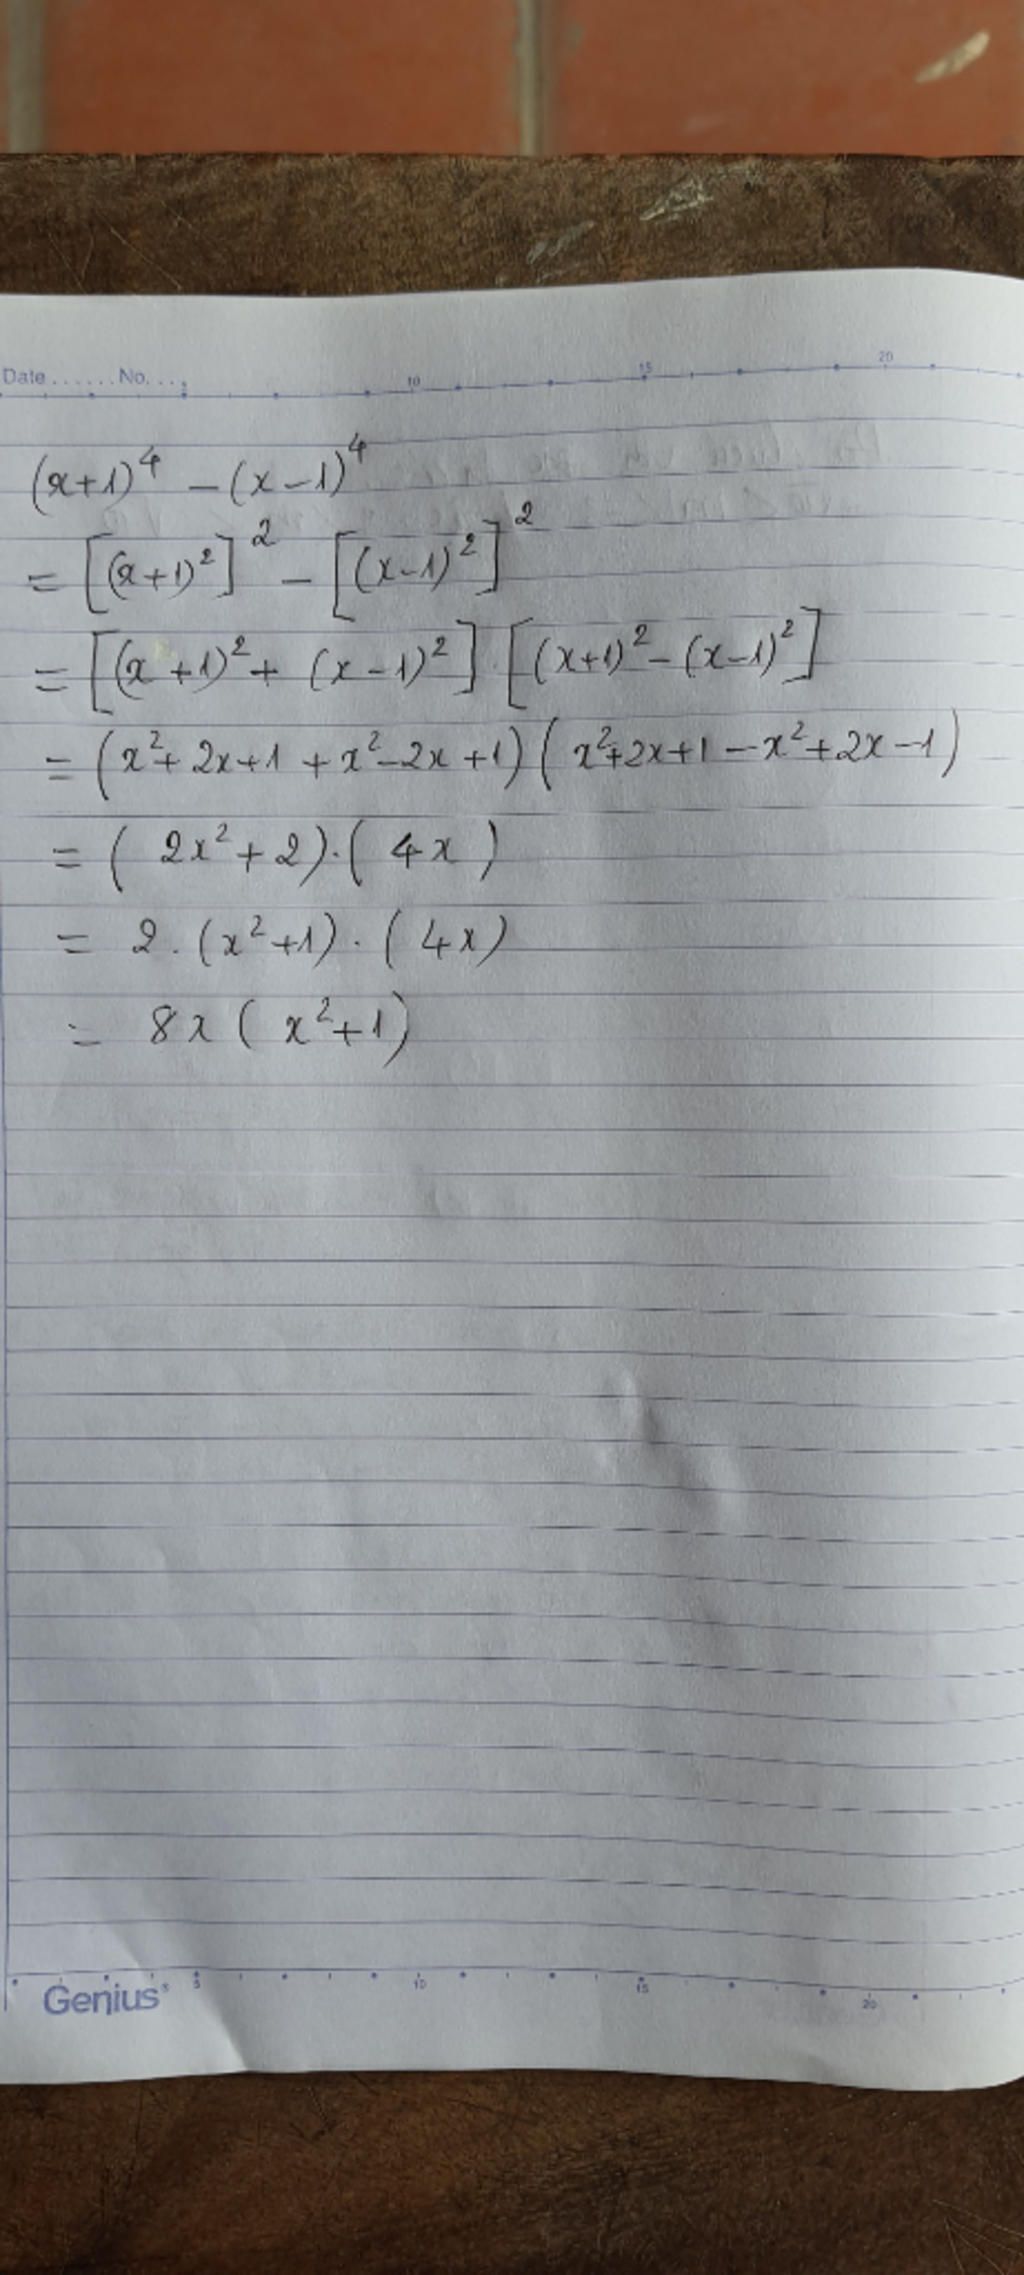 Date ...... No. ....
10 15 20
(x+1)⁴ - (x-1)⁴
= [(x+1)²]² - [(x-1)²]²
= [(x+1)² + (x-1)²] . [(x+1)² - (x-1)²]
= (x²+2x+1+x²-2x+1)(x²+2x+1-x²+2x-1)
= (2x²+2).(4x)
= 2.(x²+1).(4x)
= 8x(x²+1)
Genius® 5 10 15 20